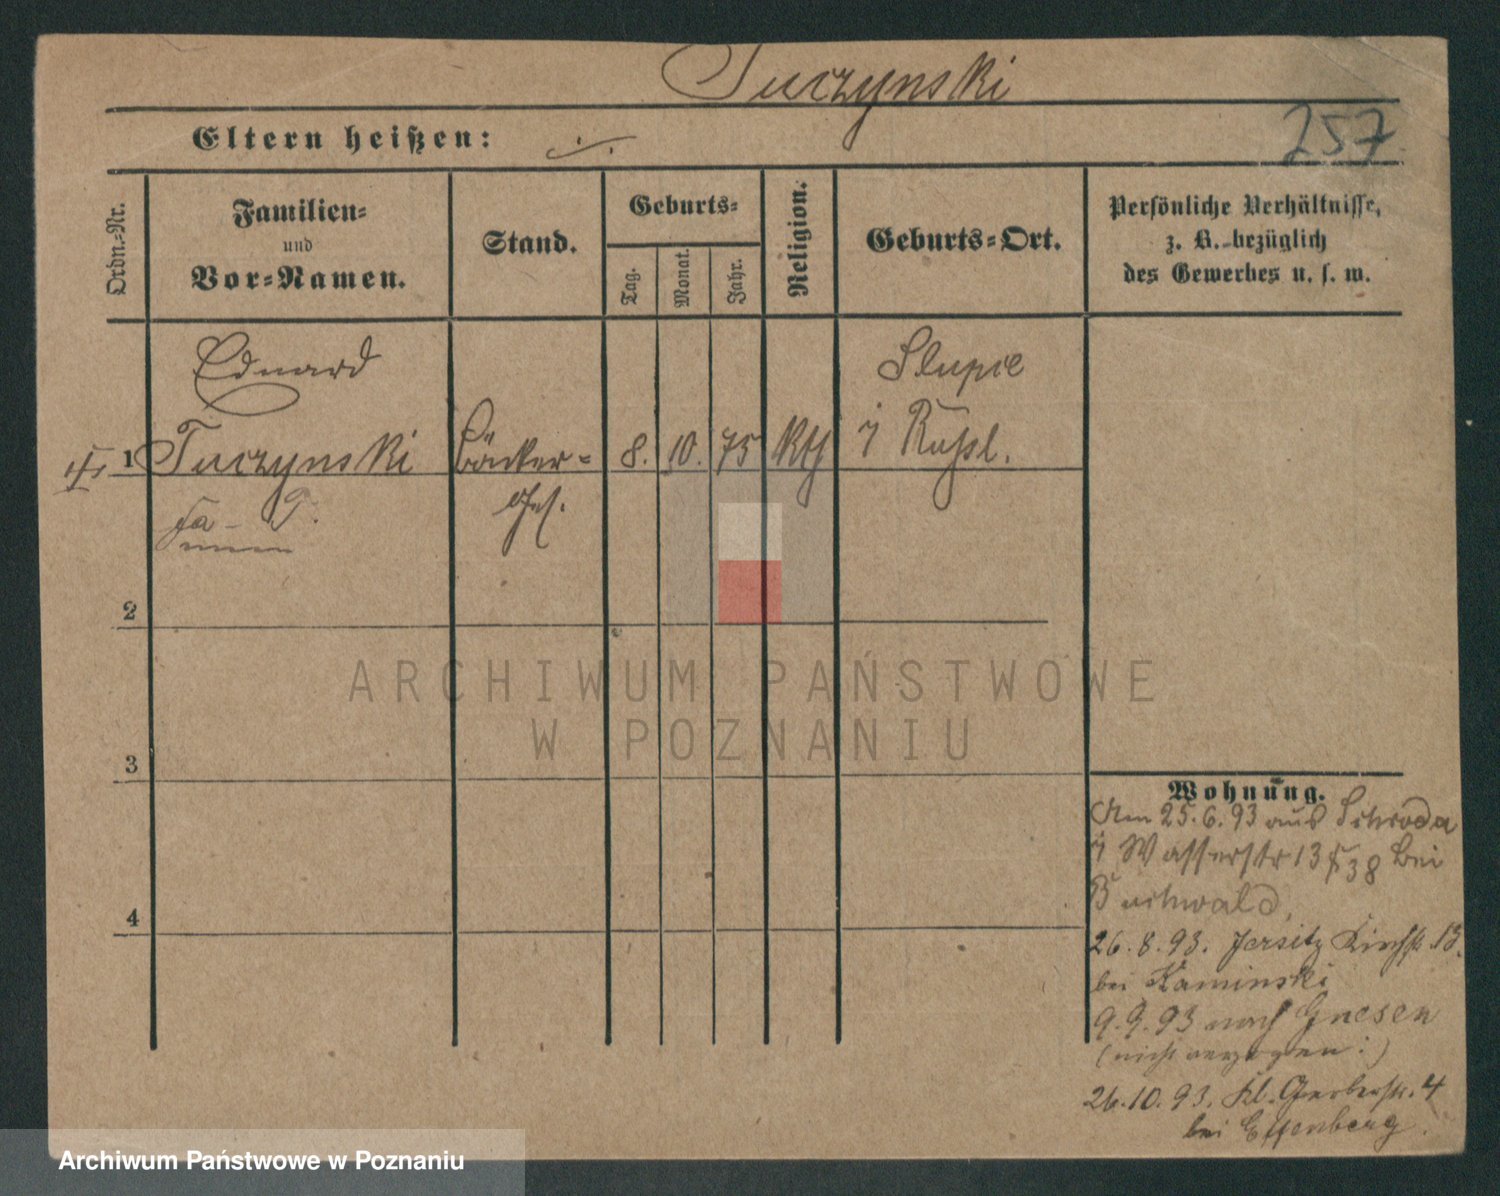 Tuczynski
Eltern heißen: ./.
257
Ordn.-Nr.
Familien-
und
Vor-Namen.
Stand.
Geburts-
Tag.
Monat.
Jahr.
Religion.
Geburts-Ort.
Persönliche Verhältnisse,
z. B. bezüglich
des Gewerbes u. s. w.
Eduard
Slupie
1 Tuczynski Bäcker- 8. 10. 75 Kth i Rußl.
Ges.
2
3
4
Wohnung.
Am 25.6.93 aus Schroda
i Wasserstr 13 38 bei
Buchwald,
26.8.93. Jersitz Kirchst. 13.
bei Kaminski
9.9.93 nach Gnesen
(nicht verzogen:)
26.10.93. Kl. Gerberstr. 4
bei Effenberg.
ARCHIWUM PAŃSTWOWE
W POZNANIU
Archiwum Państwowe w Poznaniu